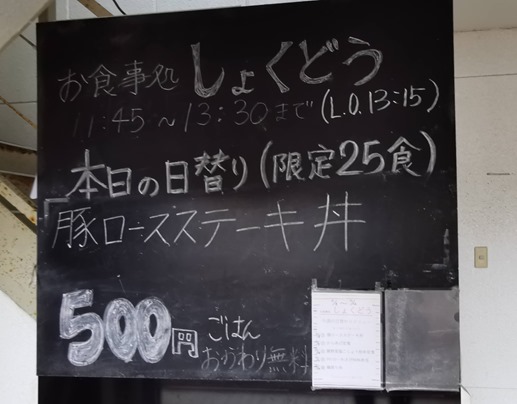 お食事処 しょくどう
11:45～13:30まで (L.O.13:15)
本日の日替り(限定25食)
「豚ロースステーキ丼
500円 ごはん
おかわり無料
しょくどう